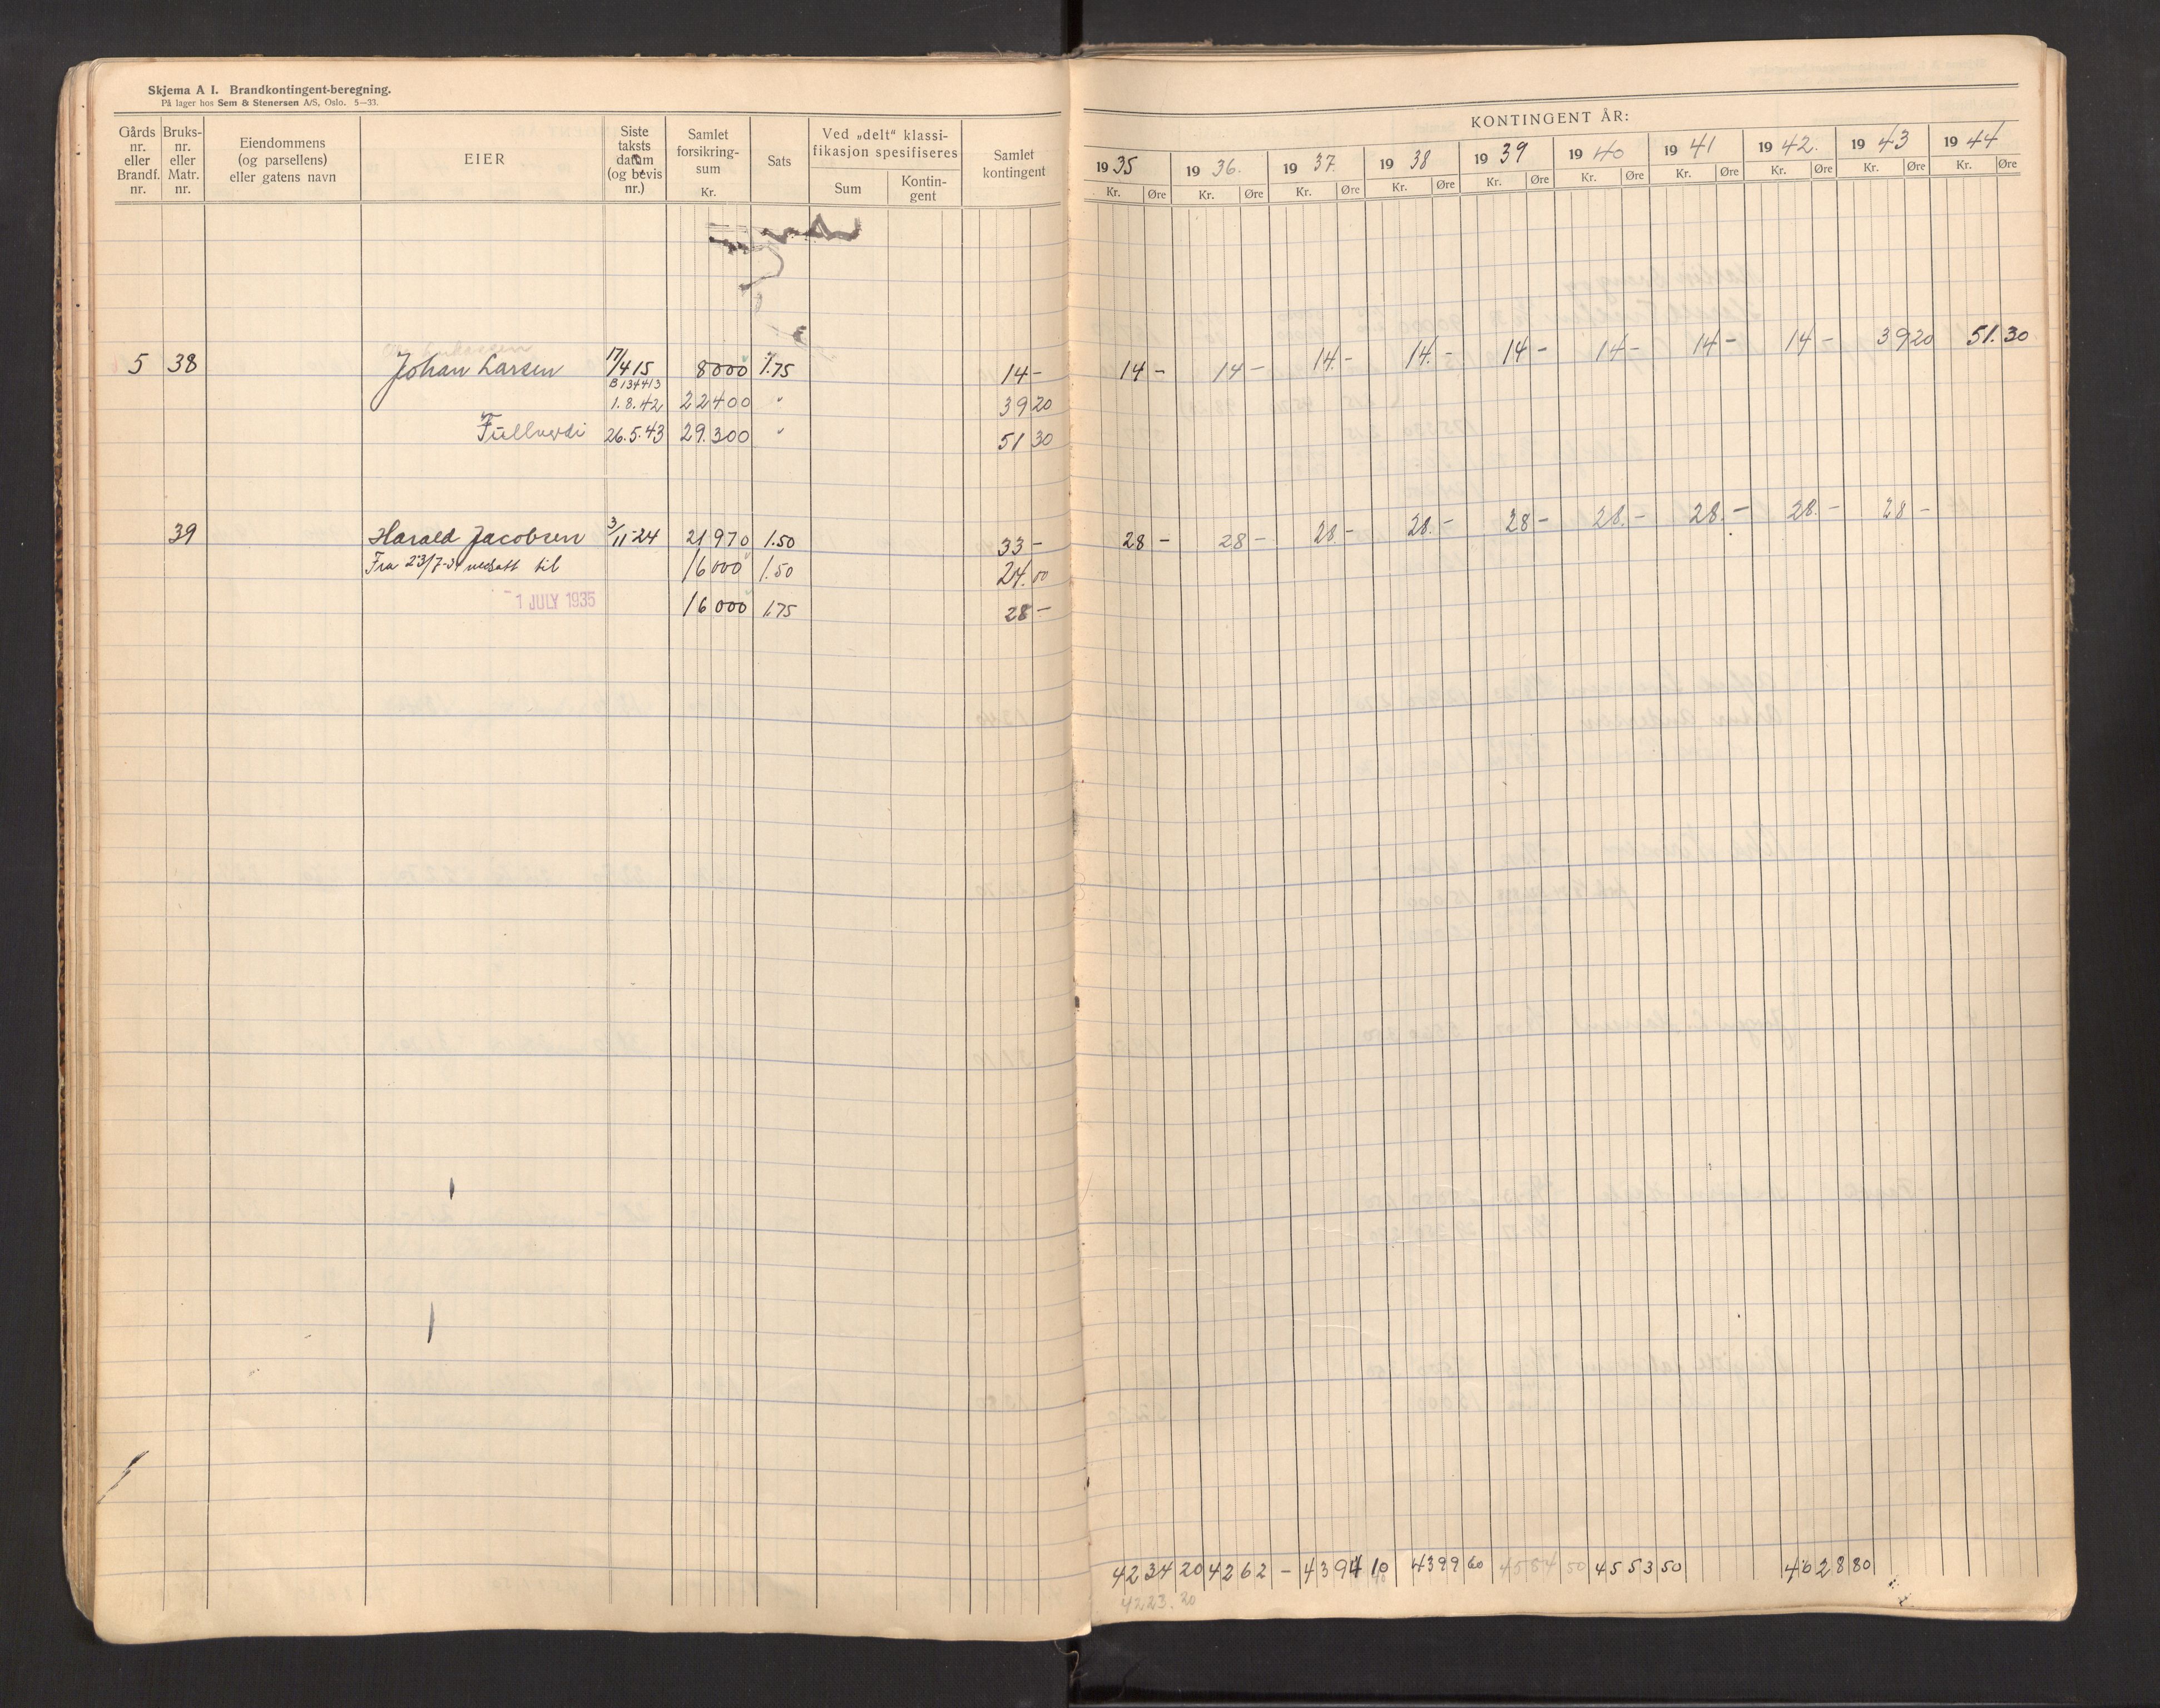 Skjema A I. Brandkontingent-beregning.
På lager hos Sem & Stenersen A/S, Oslo. 5—33.
Gårds nr. eller Brandf. nr.
Bruks- nr. eller Matr. nr.
Eiendommens (og parsellens) eller gatens navn
EIER
Siste taksts datum (og bevis nr.)
Samlet forsikring- sum Kr.
Sats
Ved „delt" klassi- fikasjon spesifiseres
Sum
Kontin- gent
Samlet kontingent
KONTINGENT ÅR:
1935 1936. 1937. 1938 1939 1940 1941 1942. 1943 1944
Kr. Øre Kr. Øre Kr. Øre Kr. Øre Kr. Øre Kr. Øre Kr. Øre Kr. Øre Kr. Øre Kr. Øre
5 38 Johan Larsen 17/4 15 8000 1.75 14- 14- 14- 14.- 14.- 14- 14- 14- 14- 3920 51.30
B134413
1.8.42 22400 " 3920
Fullverdi 26.5.43 29.300 " 51 30
39 Harald Jacobsen 3/11-24 21970 1.50 33- 28- 28- 28.- 28.- 28- 28.- 28.- 28.- 28-
Fra 23/7-34 nedsatt til 16000 1.50 24.00
-1 JULY 1935 16000 1.75 28-
4234 20 4262 - 4394 10 4399 60 4584 50 4553 50 4628 80
4223.20